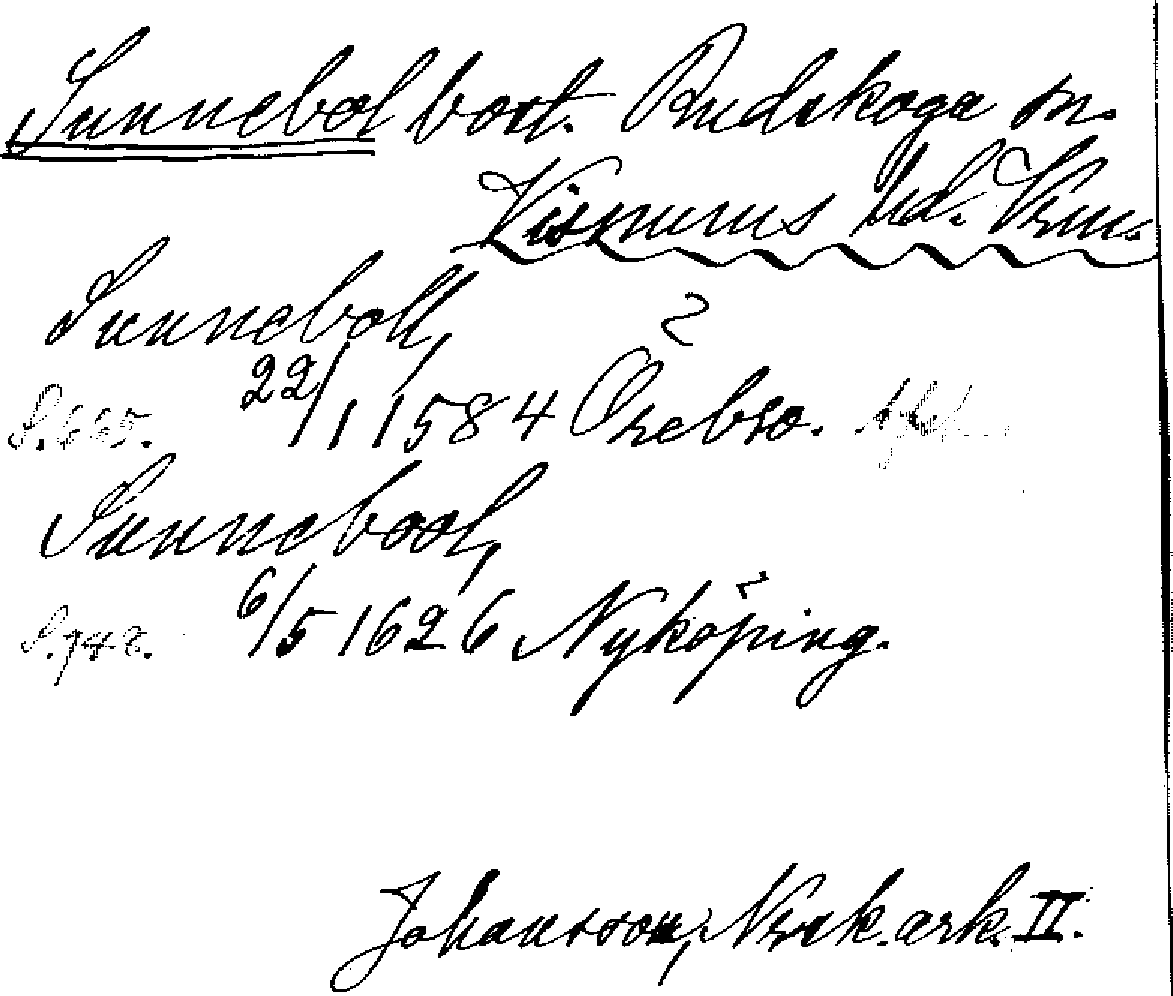 Sunnebol bort. Rudskoga sn.
Visnums hd. Vrm.
Sunneboll,
S. 665. 22/1 1584 Örebro.
Sunnebool,
S. 748. 6/5 1626 Nyköping.
Johansson, Norsk. ark. II.